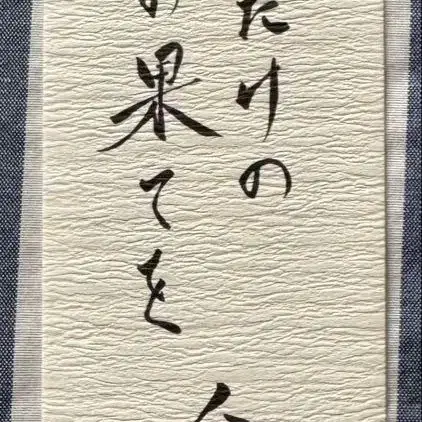 たけの
果てを